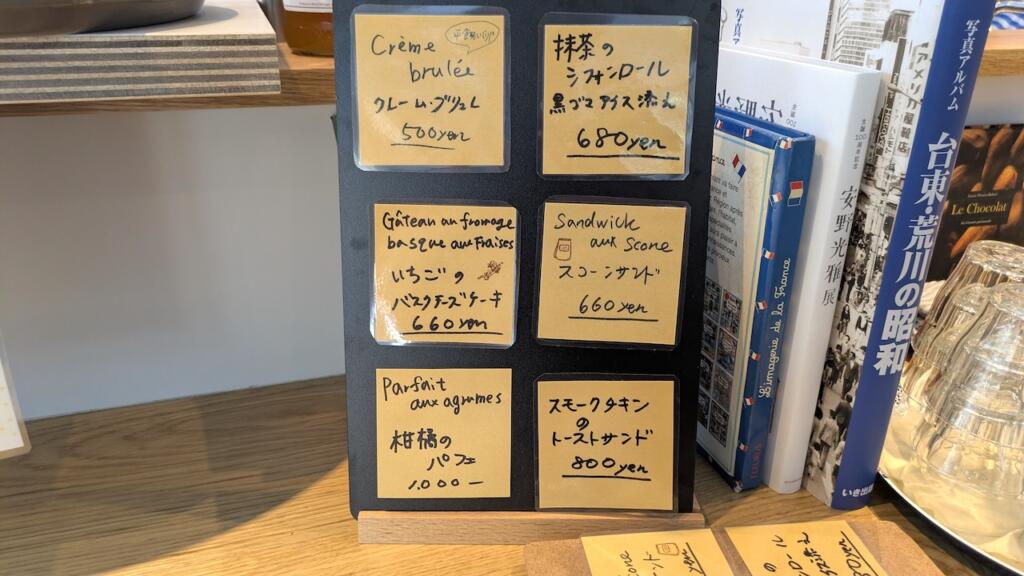 Crème
brulée
クレーム・ブリュレ
500yen
抹茶の
シフォンロール
黒ゴマアイス添え
680yen
Gâteau au fromage
basque aux Fraises
いちごの
バスクチーズケーキ
660yen
Sandwick
aux Scone
スコーンサンド
660yen
Parfait
aux agrumes
柑橘の
パフェ
1,000-
スモークチキン
の
トーストサンド
800yen
L'imagerie de la France
安野光雅展
写真アルバム
台東・荒川の昭和
いき出版
Le Chocolat
cone
yen